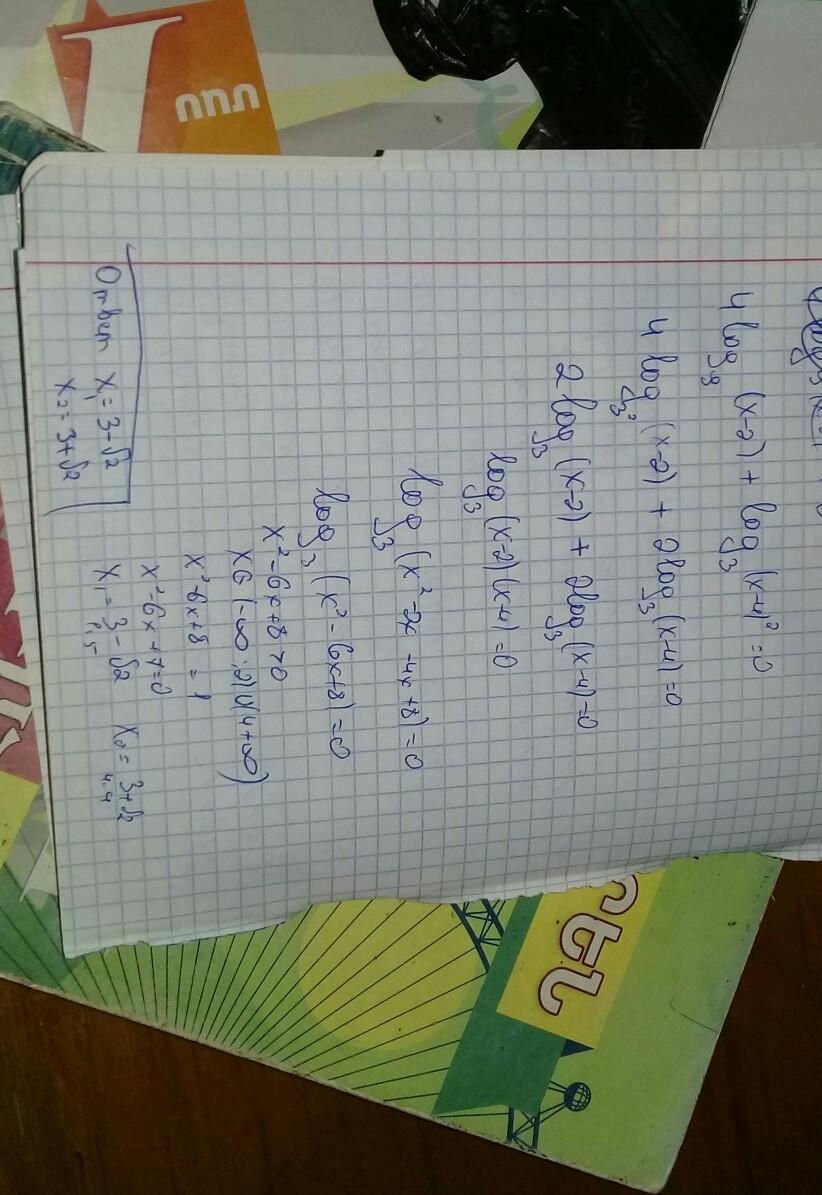 4log₃ (x-2) + log√3 (x-4)² = 0
4log√3² (x-2) + 2log√3 (x-4) = 0
2log√3 (x-2) + 2log√3 (x-4) = 0
log√3 (x-2)(x-4) = 0
log√3 (x² - 2x - 4x + 8) = 0
log√3 (x² - 6x + 8) = 0
x² - 6x + 8 > 0
x ∈ (-∞; 2) ∪ (4 +∞)
x² - 6x + 8 = 1
x² - 6x + 7 = 0
x₁ = 3 - √2 x₂ = 3 + √2
1,5 4.4
Ответ x₁ = 3 - √2
x₂ = 3 + √2